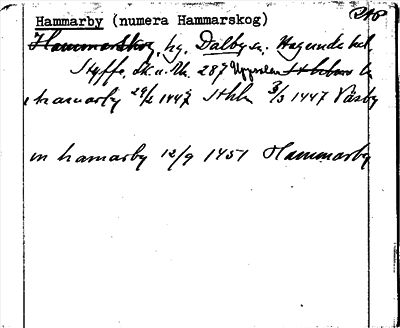 Hammarby (numera Hammarskog)
Hammarskog, hg, Dalby sn. Hagunda hd.
Styffe, Sk. u. Un. 287 Uppsala Stockholms l.
hamarby 29/2 1447 Sthlm 3/3 1447 Väsby
m hamarby 12/9 1451 Hammarby